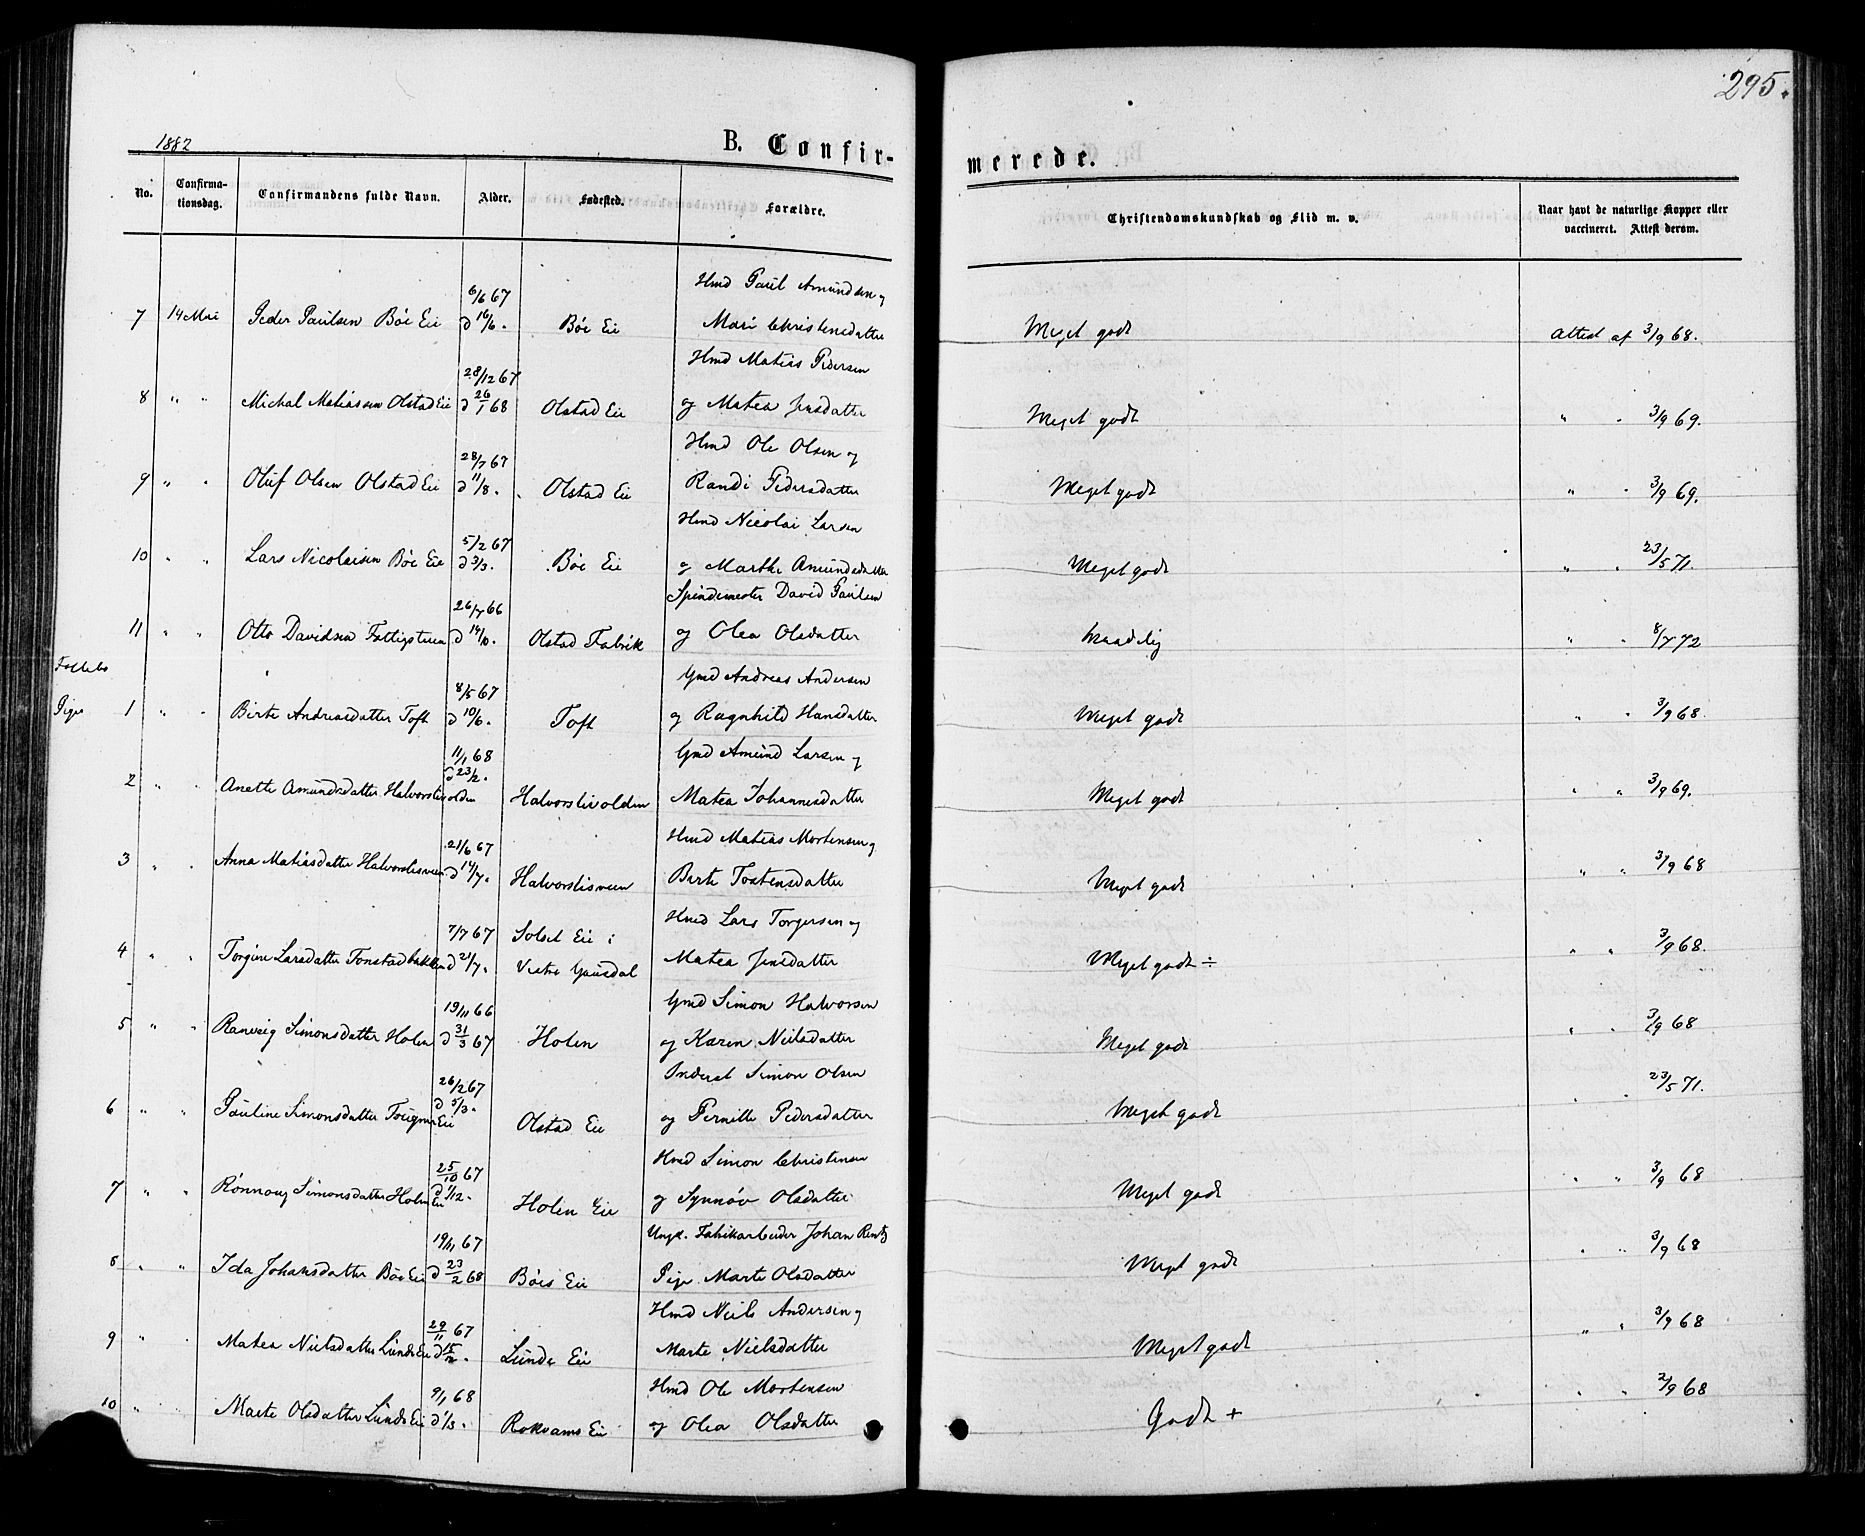 295.
1882
B. Confir-
merede.
No.
Confirma-
tionsdag.
Confirmandens fulde Navn.
Alder.
Fødested.
Forældre.
Christendomskundskab og Flid m. v.
Naar havt de naturlige Kopper eller
vaccineret. Attest derom.
6/6 67 Hmd Paul Amundsen og
7 14 Mai Peder Paulsen Bøe Eie d 16/6. Bøe Eie Mari Christensdatter Meget godt Attest af 3/9 68.
28/12 67 Hmd Matias Pedersen
8 " " Michal Matiassen Olstad Eie d 26/1 68 Olstad Eie og Matea Jensdatter Meget godt " " 3/9 69.
28/7 67 Hmd Ole Olsen og
9 " " Oluf Olsen Olstad Eie d 11/8. Olstad Eie Randi Pedersdatter Meget godt " " 3/9 69.
5/2 67 Hmd Nicolai Larsen
10 " " Lars Nicolaisen Bøe Eie d 3/3. Bøe Eie og Marthe Amundsdatter Meget godt " " 23/5 71.
26/7 66 Spindemester David Paulsen
11 " " Otto Davidsen d 14/10. Olstad Fabrik og Olea Olsdatter Maadelig " " 8/7 72
Follebo
8/5 67 Gmd Andreas Andersen
Piger 1 " " Birte Andreasdatter Toft d 10/6. Toft og Ragnhild Hansdatter Meget godt " " 3/9 68.
11/1 68 Gmd Amund Larsen og
2 " " Anette Amundsdatter Halvorslivolden d 23/2. Halvorslivolden Matea Johannesdatter Meget godt " " 3/9 69.
21/6 67 Hmd Matias Mortensen og
3 " " Anna Matiasdatter Halvorslisveen d 14/7. Halvorslisveen Birte Tostensdatter Meget godt " " 3/9 68
7/7 67 Solset Eie i Hmd Lars Torgersen og
4 " " Torgine Larsdatter Fonstadbakken d 21/7. Vestre Gausdal Matea Jensdatter Meget godt ÷ " " 3/9 68.
19/11 66 Gmd Simon Halvorsen
5 " " Ranveig Simonsdatter Holen d 31/3 67 Holen og Karen Nielsdatter Meget godt " " 3/9 68
26/2 67 Inderst Simon Olsen
6 " " Pauline Simonsdatter Eie d 5/3. Olstad Eie og Pernille Pedersdatter Meget godt " " 23/5 71.
25/10 67 Hmd Simon Christensen
7 " " Rønnoug Simonsdatter Holen Eie d 1/12. Holen Eie og Synnøv Olsdatter Meget godt " " 3/9 68
19/11 67 Ungk. Fabrikarbeider Johan Rentz
8 " " Ida Johansdatter Bøe Eie d 23/2 68 Bøes Eie Pige Marte Olsdatter Meget godt " " 3/9 68
29/11 67 Hmd Niels Andersen og
9 " " Matea Nielsdatter Lunds Eie d 15/2. Lunde Eie Marte Nielsdatter Meget godt " " 3/9 68
9/1 68 Hmd Ole Mortensen
10 " " Marte Olsdatter Lunds Eie d 1/3. Rokvams Eie og Olea Olsdatter Godt + " " 2/9 68